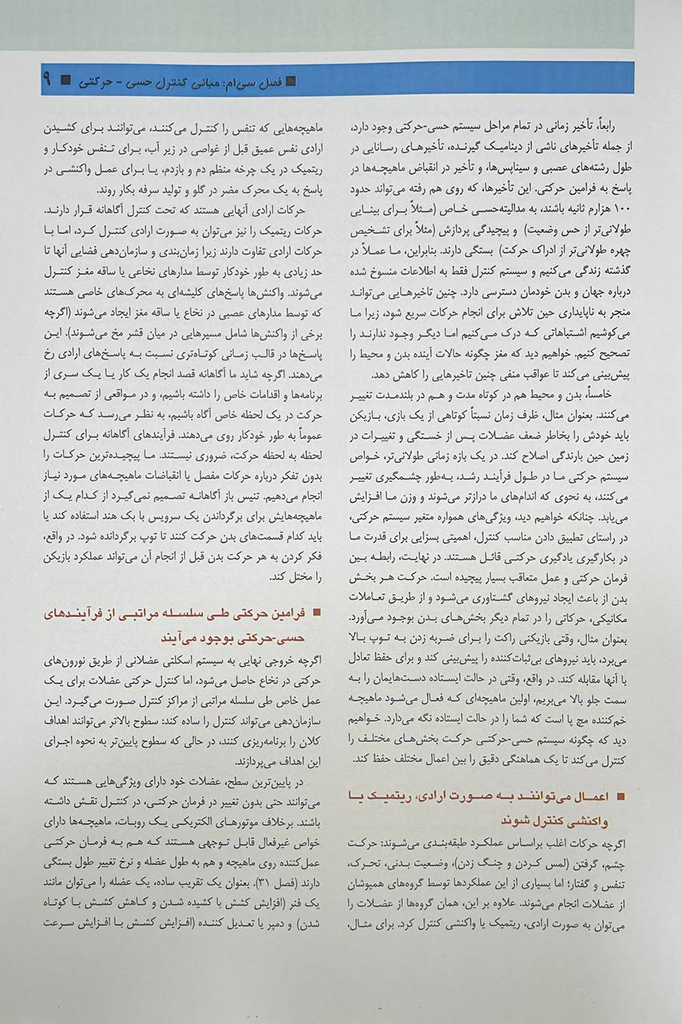 فصل سی‌ام: مبانی کنترل حسی - حرکتی ■ ۹
رابعاً، تأخیر زمانی در تمام مراحل سیستم حسی-حرکتی وجود دارد،
از جمله تأخیرهای ناشی از دینامیک گیرنده، تأخیرهای رسانایی در
طول رشته‌های عصبی و سیناپس‌ها، و تأخیر در انقباض ماهیچه‌ها در
پاسخ به فرامین حرکتی. این تأخیرها، که روی هم رفته می‌تواند حدود
۱۰۰ هزارم ثانیه باشند، به مدالیته‌حسی خاص (مثلاً برای بینایی
طولانی‌تر از حس وضعیت) و پیچیدگی پردازش (مثلاً برای تشخیص
چهره طولانی‌تر از ادراک حرکت) بستگی دارند. بنابراین، ما عملاً در
گذشته زندگی می‌کنیم و سیستم کنترل فقط به اطلاعات منسوخ شده
درباره جهان و بدن خودمان دسترسی دارد. چنین تاخیرهایی می‌تواند
منجر به ناپایداری حین تلاش برای انجام حرکات سریع شود، زیرا ما
می‌کوشیم اشتباهاتی که درک می‌کنیم اما دیگر وجود ندارند را
تصحیح کنیم. خواهیم دید که مغز چگونه حالات آینده بدن و محیط را
پیش‌بینی می‌کند تا عواقب منفی چنین تاخیرهایی را کاهش دهد.
خامساً، بدن و محیط هم در کوتاه مدت و هم در بلندمدت تغییر
می‌کنند. بعنوان مثال، ظرف زمان نسبتاً کوتاهی از یک بازی، بازیکن
باید خودش را بخاطر ضعف عضلات پس از خستگی و تغییرات در
زمین حین بارندگی اصلاح کند. در یک بازه زمانی طولانی‌تر، خواص
سیستم حرکتی ما در طول فرآیند رشد، به‌طور چشمگیری تغییر
می‌کنند، به نحوی که اندام‌های ما درازتر می‌شوند و وزن ما افزایش
می‌یابد. چنانکه خواهیم دید، ویژگی‌های همواره متغیر سیستم حرکتی،
در راستای تطبیق دادن مناسب کنترل، اهمیتی بسزایی برای قدرت ما
در بکارگیری یادگیری حرکتی قائل هستند. در نهایت، رابطه بین
فرمان حرکتی و عمل متعاقب بسیار پیچیده است. حرکت هر بخش
بدن از باعث ایجاد نیروهای گشتاوری می‌شود و از طریق تعاملات
مکانیکی، حرکاتی را در تمام دیگر بخش‌های بدن بوجود می‌آورد.
بعنوان مثال، وقتی بازیکنی راکت را برای ضربه زدن به توپ بالا
می‌برد، باید نیروهای بی‌ثبات‌کننده را پیش‌بینی کند و برای حفظ تعادل
با آنها مقابله کند. در واقع، وقتی در حالت ایستاده دست‌هایمان را به
سمت جلو بالا می‌بریم، اولین ماهیچه‌ای که فعال می‌شود ماهیچه
خم‌کننده مچ پا است که شما را در حالت ایستاده نگه می‌دارد. خواهیم
دید که چگونه سیستم حسی-حرکتی حرکت بخش‌های مختلف را
کنترل می‌کند تا یک هماهنگی دقیق را بین اعمال مختلف حفظ کند.
■ اعمال می‌توانند به صورت ارادی، ریتمیک یا
واکنشی کنترل شوند
اگرچه حرکات اغلب براساس عملکرد طبقه‌بندی می‌شوند: حرکت
چشم، گرفتن (لمس کردن و چنگ زدن)، وضعیت بدنی، تحرک،
تنفس و گفتار؛ اما بسیاری از این عملکردها توسط گروه‌های همپوشان
از عضلات انجام می‌شوند. علاوه بر این، همان گروه‌ها از عضلات را
می‌توان به صورت ارادی، ریتمیک یا واکنشی کنترل کرد. برای مثال،
ماهیچه‌هایی که تنفس را کنترل می‌کنند، می‌توانند برای کشیدن
ارادی نفس عمیق قبل از غواصی در زیر آب، برای تنفس خودکار و
ریتمیک در یک چرخه منظم دم و بازدم، یا برای عمل واکنشی در
پاسخ به یک محرک مضر در گلو و تولید سرفه بکار روند.
حرکات ارادی آنهایی هستند که تحت کنترل آگاهانه قرار دارند.
حرکات ریتمیک را نیز می‌توان به صورت ارادی کنترل کرد، اما با
حرکات ارادی تفاوت دارند زیرا زمان‌بندی و سازمان‌دهی فضایی آنها تا
حد زیادی به طور خودکار توسط مدارهای نخاعی یا ساقه مغز کنترل
می‌شوند. واکنش‌ها پاسخ‌های کلیشه‌ای به محرک‌های خاصی هستند
که توسط مدارهای عصبی در نخاع یا ساقه مغز ایجاد می‌شوند (اگرچه
برخی از واکنش‌ها شامل مسیرهایی در میان قشر مخ می‌شوند). این
پاسخ‌ها در قالب زمانی کوتاه‌تری نسبت به پاسخ‌های ارادی رخ
می‌دهند. اگرچه شاید ما آگاهانه قصد انجام یک کار یا یک سری از
برنامه‌ها و اقدامات خاص را داشته باشیم، و در مواقعی از تصمیم به
حرکت در یک لحظه خاص آگاه باشیم، به نظر می‌رسد که حرکات
عموماً به طور خودکار روی می‌دهند. فرآیندهای آگاهانه برای کنترل
لحظه به لحظه حرکت، ضروری نیستند. ما پیچیده‌ترین حرکات را
بدون تفکر درباره حرکات مفصل یا انقباضات ماهیچه‌های مورد نیاز
انجام می‌دهیم. تنیس باز آگاهانه تصمیم نمی‌گیرد از کدام یک از
ماهیچه‌هایش برای برگرداندن یک سرویس با بک هند استفاده کند یا
باید کدام قسمت‌های بدن حرکت کنند تا توپ برگردانده شود. در واقع،
فکر کردن به هر حرکت بدن قبل از انجام آن می‌تواند عملکرد بازیکن
را مختل کند.
■ فرامین حرکتی طی سلسله مراتبی از فرآیندهای
حسی-حرکتی بوجود می‌آیند
اگرچه خروجی نهایی به سیستم اسکلتی عضلانی از طریق نورون‌های
حرکتی در نخاع حاصل می‌شود، اما کنترل حرکتی عضلات برای یک
عمل خاص طی سلسله مراتبی از مراکز کنترل صورت می‌گیرد. این
سازمان‌دهی می‌تواند کنترل را ساده کند: سطوح بالاتر می‌توانند اهداف
کلان را برنامه‌ریزی کنند، در حالی که سطوح پایین‌تر به نحوه اجرای
این اهداف می‌پردازند.
در پایین‌ترین سطح، عضلات خود دارای ویژگی‌هایی هستند که
می‌توانند حتی بدون تغییر در فرمان حرکتی، در کنترل نقش داشته
باشند. برخلاف موتورهای الکتریکی یک روبات، ماهیچه‌ها دارای
خواص غیرفعال قابل توجهی هستند که هم به فرمان حرکتی
عمل‌کننده روی ماهیچه و هم به طول عضله و نرخ تغییر طول بستگی
دارند (فصل ۳۱). بعنوان یک تقریب ساده، یک عضله را می‌توان مانند
یک فنر (افزایش کشش با کشیده شدن و کاهش کشش با کوتاه
شدن) و دمپر یا تعدیل کننده (افزایش کشش با افزایش سرعت